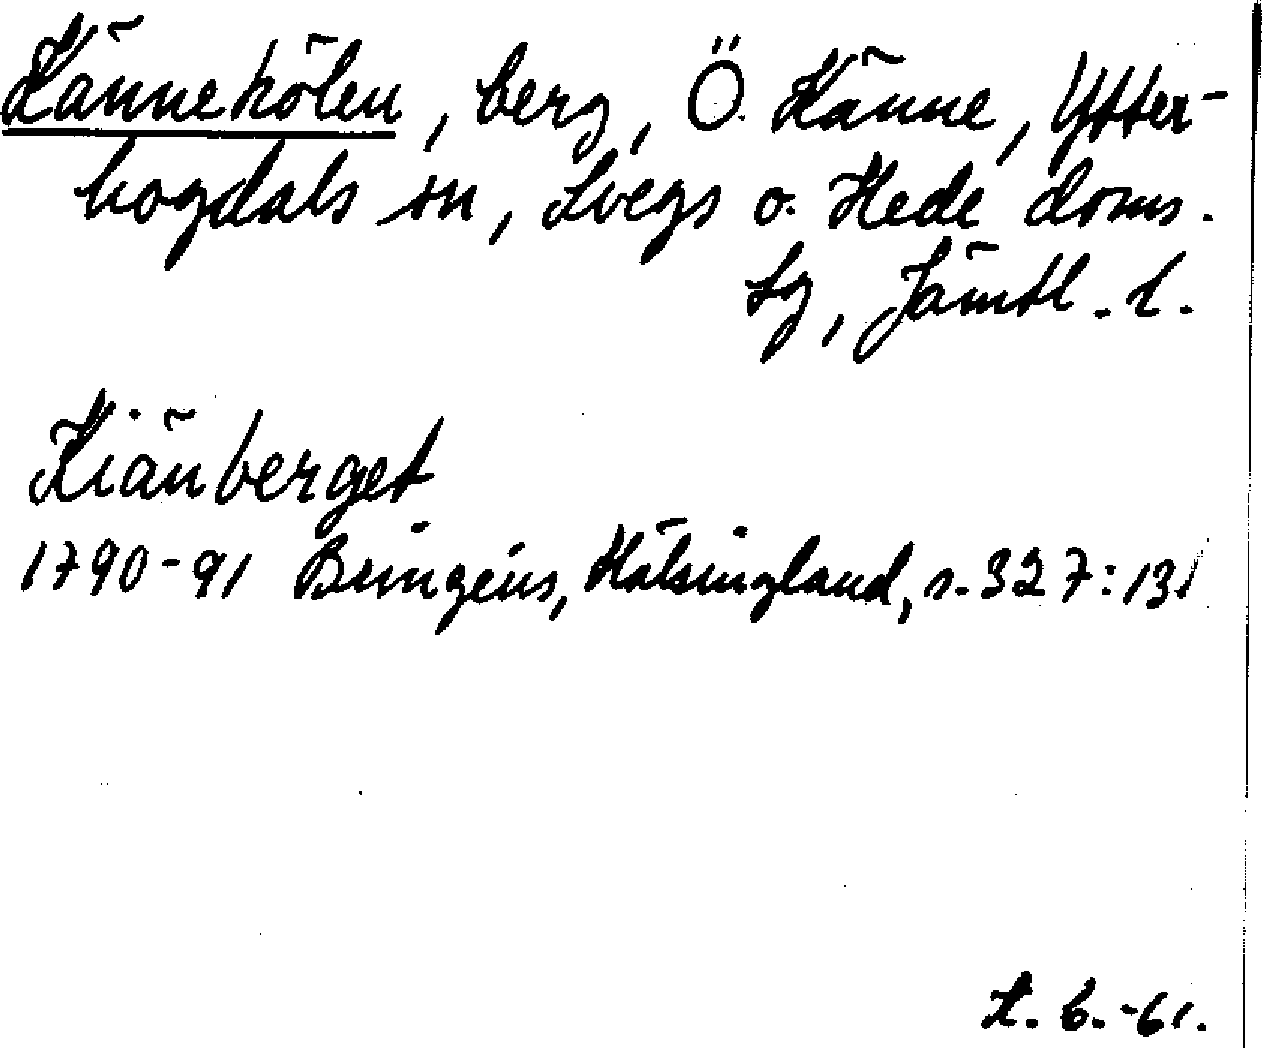 Kännekölen, berg, Ö. Känne, Ytter-
hogdals sn, Svegs o. Hede doms.
sg, Jämtl. l.
Kiänberget
1790-91 Bringéus, Hälsingland, s. 327:131
H. G. -61.